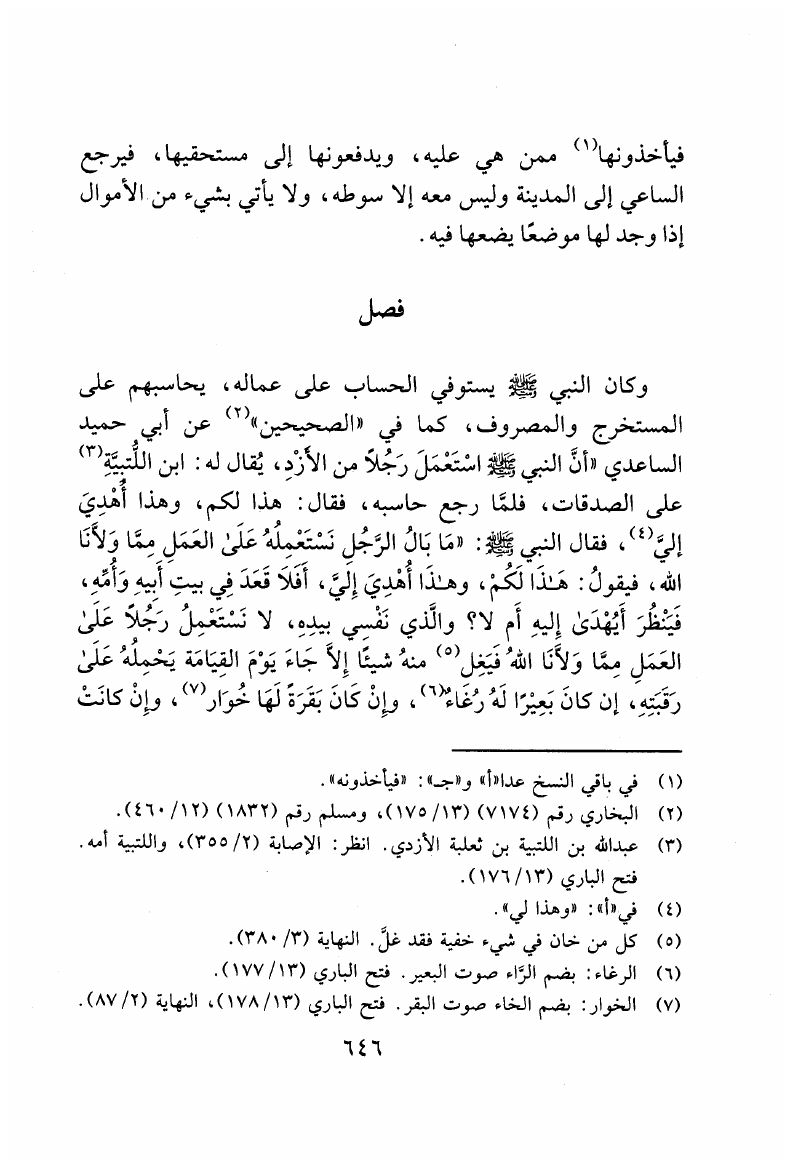 فيأخذونها(١) ممن هي عليه، ويدفعونها إلى مستحقيها، فيرجع
الساعي إلى المدينة وليس معه إلا سوطه، ولا يأتي بشيء من الأموال
إذا وجد لها موضعًا يضعها فيه.
فصل
وكان النبي ﷺ يستوفي الحساب على عماله، يحاسبهم على
المستخرج والمصروف، كما في «الصحيحين»(٢) عن أبي حميد
الساعدي «أنَّ النبي ﷺ اسْتَعْمَلَ رَجُلاً من الأزْدِ، يُقال له: ابن اللُّتبيَّةِ(٣)
على الصدقات، فلمَّا رجع حاسبه، فقال: هذا لكم، وهذا أُهْدِيَ
إليَّ(٤)، فقال النبي ﷺ: «مَا بَالُ الرَّجُلِ نَسْتَعْمِلُهُ عَلَىٰ العَمَلِ مِمَّا وَلأَنَا
الله، فيقولُ: هَـٰذَا لَكُمْ، وهـٰذَا أُهْدِيَ إِليَّ، أفَلاَ قَعَدَ فِي بيتِ أبيهِ وَأُمِّهِ،
فَيَنْظُرَ أَيُهْدَىٰ إِليهِ أم لا؟ والَّذي نَفْسِي بيدِهِ، لا نَسْتَعْمِلُ رَجُلاً عَلَىٰ
العَمَلِ مِمَّا وَلأَنَا اللهُ فَيَغِل(٥) منهُ شيئًا إِلاَّ جَاءَ يَوْمَ القِيَامَة يَحْمِلُهُ عَلَىٰ
رَقَبَتِهِ، إن كانَ بَعِيْرًا لَهُ رُغَاءٌ(٦)، وإنْ كَانَ بَقَرَةً لَهَا خُوَار(٧)، وإنْ كانَتْ
(١) في باقي النسخ عدا«أ» و«جـ»: «فيأخذونه».
(٢) البخاري رقم (٧١٧٤) (١٣/ ١٧٥)، ومسلم رقم (١٨٣٢) (١٢/ ٤٦٠).
(٣) عبدالله بن اللتبية بن ثعلبة الأزدي. انظر: الإصابة (٢/ ٣٥٥)، واللتبية أمه.
فتح الباري (١٣/ ١٧٦).
(٤) في«أ»: «وهذا لي».
(٥) كل من خان في شيء خفية فقد غلَّ. النهاية (٣/ ٣٨٠).
(٦) الرغاء: بضم الرَّاء صوت البعير. فتح الباري (١٣/ ١٧٧).
(٧) الخوار: بضم الخاء صوت البقر. فتح الباري (١٣/ ١٧٨)، النهاية (٢/ ٨٧).
٦٤٦